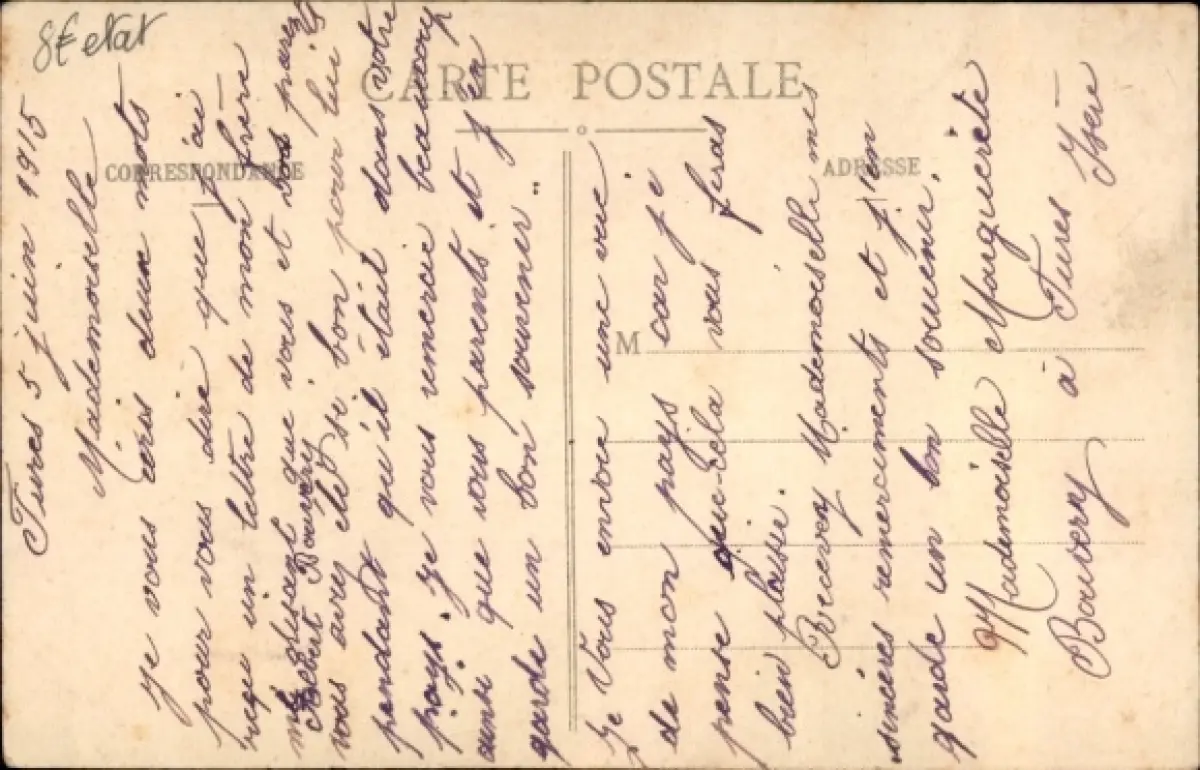 8€ etat
CARTE POSTALE
CORRESPONDANCE
ADRESSE
M
Tures 5 juin 1915
Mademoiselle
Je vous ecris deux mots
pour vous dire que j'ai
reçe un lettre de mon frère
me disant que vous et vos parez
Albert Bouvery
vous avez eté si bon pour lui
pendant qu'il était dans votre
pays. Je vous remercie beaucoup
ainsi que vous parents et j'en
garde un bon souvenir..
Je Vous envoie une vue
de mon pays car je
pense que cela vous feras
bien plaisir.
Recevez Mademoiselle mes
sincères remerciments et j'en
garde un bon souvenir.
Mademoiselle Marguerite
Bouvery à Tures Isère